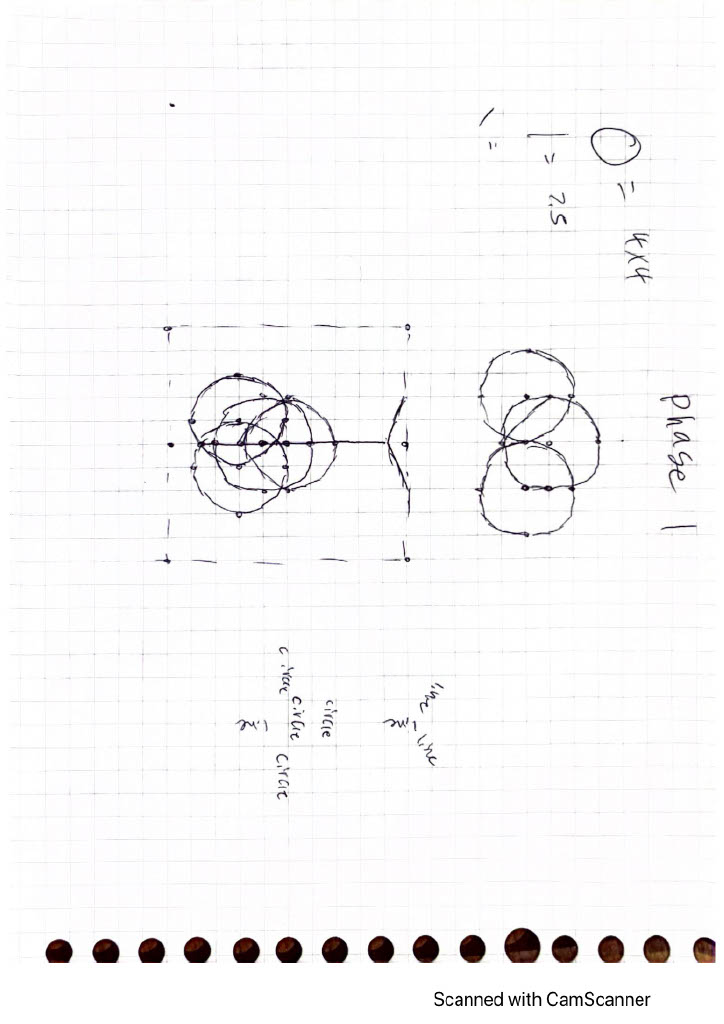 Phase 1
O = 4x4
| = 2.5
\ =
line line
line
circle
circle circle circle
line
Scanned with CamScanner